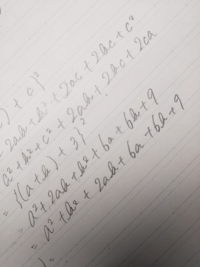 ) + c}²
2ab + b² + 2ac + 2bc + c²
a² + b² + c² + 2ab + 2bc + 2ca
= {(a + b) + 3}²
= a² + 2ab + b² + 6a + 6b + 9
= a² + b² + 2ab + 6a + 6b + 9